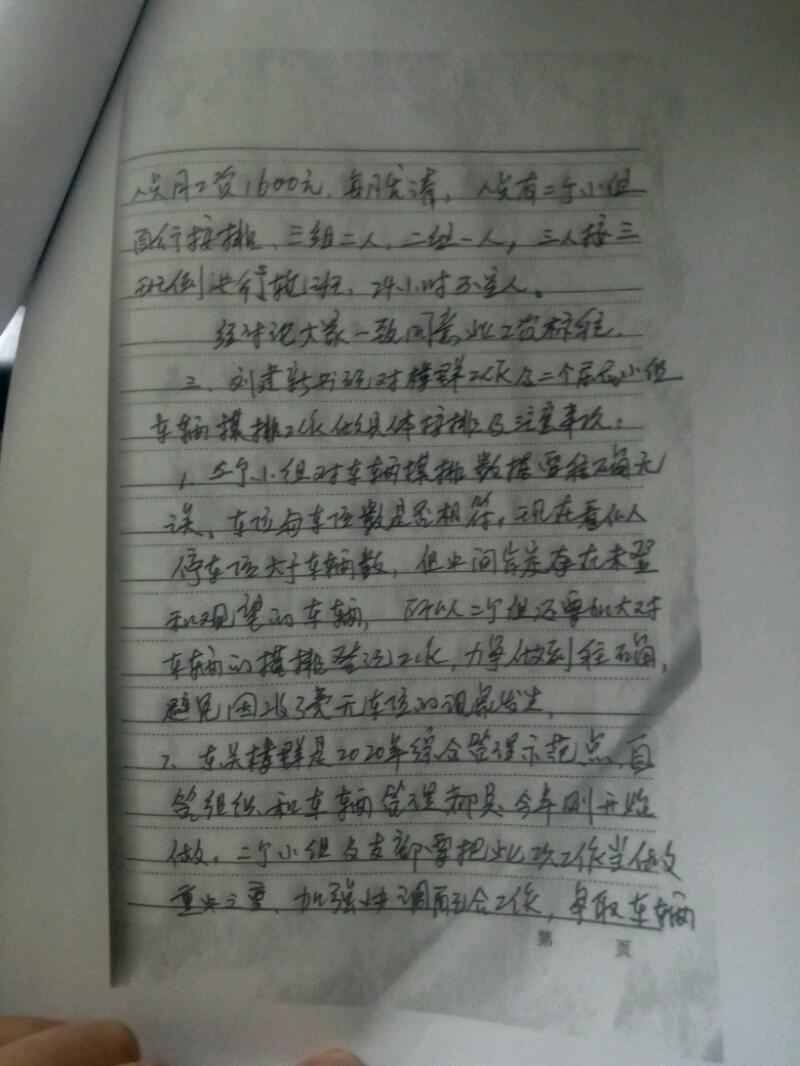 人员月工资1600元,每月发清,人员有二个小组
自行按排,三组二人,二组一人,三人按三
班倒进行轮班,24小时不空人。
经讨论大家一致同意此工资标准.
三、刘建新书记对楼群工作及二个居民小组
车辆摸排工作做具体按排及注意事项:
1,二个小组对车辆摸排数据要准确无
误,车位与车证数是否相符,现在看似
停车位大于车辆数,但中间肯定存在未登
和观望的车辆,所以二个组还要加大对
车辆的摸排登记工作,力争做到准确,
避免因收了费无车位的现象发生.
2、东关楼群是2020年综合管理示范点,自
管组织和车辆管理都是今年刚开始
做,二个小组与支部要把此次工作当做
重中之重,加强协调配合工作,争取车辆
第 页